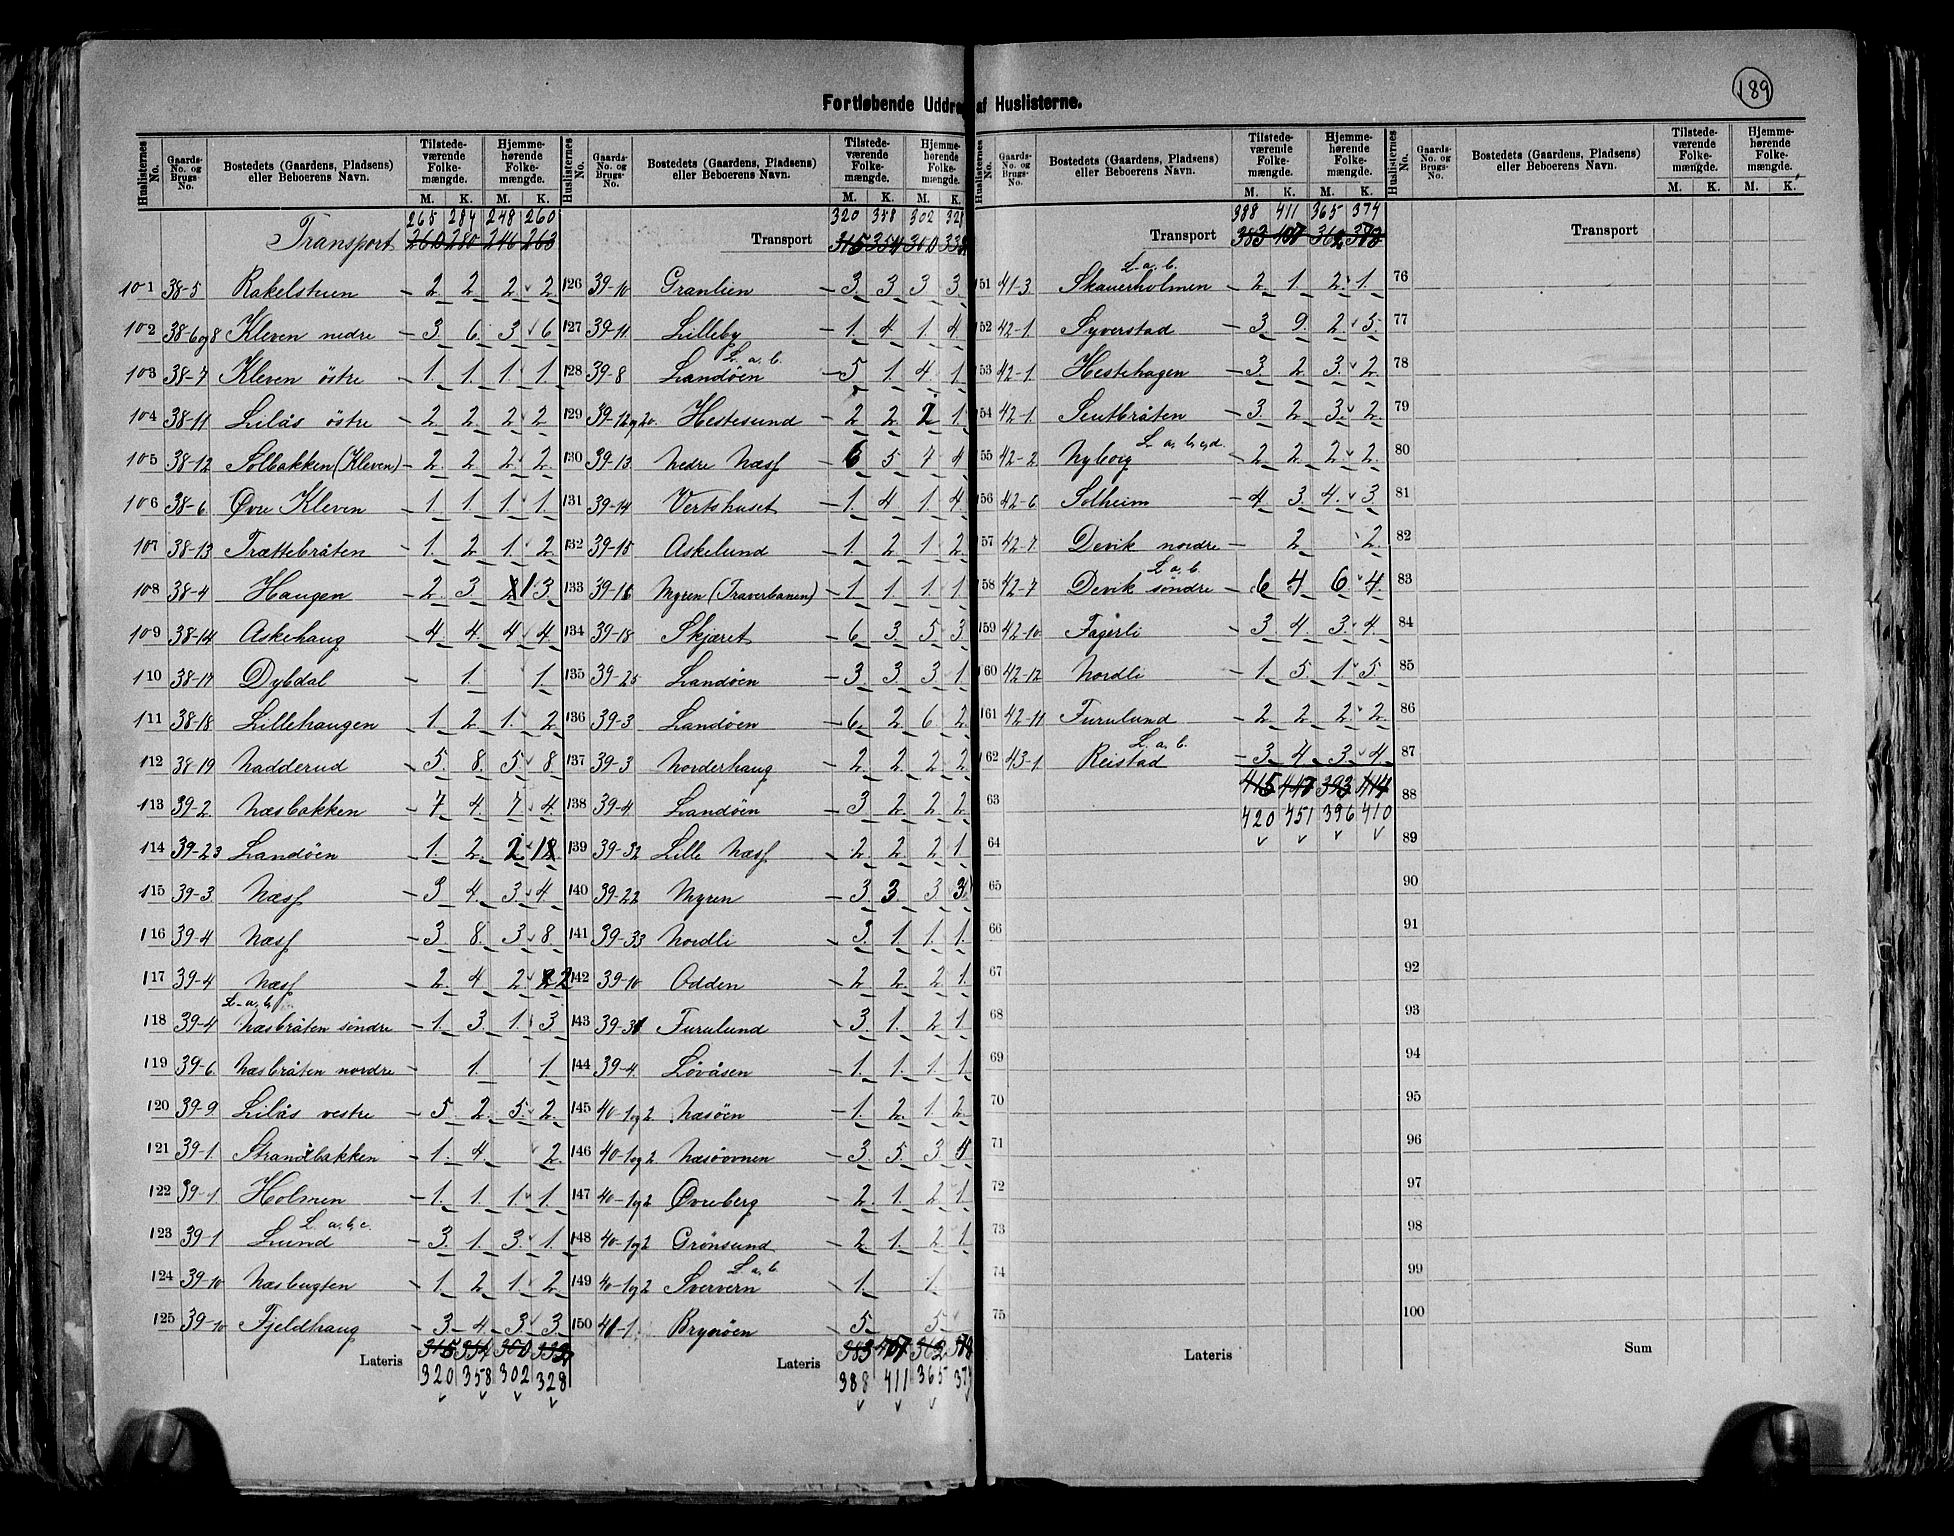 189
Fortløbende Uddrag af Huslisterne.
Huslisternes No. Gaards-No. og Brugs-No. Bostedets (Gaardens, Pladsens) eller Beboerens Navn. Tilstedeværende Folkemængde. M. K. Hjemmehørende Folkemængde. M. K.
265 284 248 260
Transport 260 280 246 263
101 38-5 Rakelstuen 2 2 2 2
102 38-6 og 8 Kleven nedre 3 6 3 6
103 38-7 Kleven östre 1 1 1 1
104 38-11 Lilås östre 2 2 2 2
105 38-12 Solbakken (Kleven) 2 2 2 2
106 38-6 Øvre Kleven 1 1 1 1
107 38-13 Trættebråten 1 2 1 2
108 38-4 Haugen 2 3 1 3
109 38-14 Askehaug 4 4 4 4
110 38-17 Dybdal 1 1
111 38-18 Lillehaugen 1 2 1 2
112 38-19 Nadderud 5 8 5 8
113 39-2 Næsbakken 7 4 7 4
114 39-23 Landöen 1 2 1
115 39-3 Næss 3 4 3 4
116 39-4 Næss 3 8 3 8
117 39-4 Næss 2 4 2 2
118 39-4 Næsbråten söndre 1 3 1 3
119 39-6 Næsbråten nordre 1 1
120 39-9 Lilås vestre 5 2 5 2
121 39-1 Strandbakken 1 4 2
122 39-1 Holmen 1 1 1 1
L. a, b, c.
123 39-1 Lund 3 1 3 1
124 39-10 Næsbugten 1 2 1 2
125 39-10 Fjeldhaug 3 4 3 3
315 354 300
Lateris 320 358 302 328
Huslisternes No. Gaards-No. og Brugs-No. Bostedets (Gaardens, Pladsens) eller Beboerens Navn. Tilstedeværende Folkemængde. M. K. Hjemmehørende Folkemængde. M. K.
320 358 302 328
Transport 315 354 300
126 39-10 Granlien 3 3 3 3
127 39-11 Lilleby 1 4 1 4
L. a, b.
128 39-8 Landöen 5 1 4 1
129 39-12 og 20 Hestesund 2 2 2 1
130 39-13 Nedre Næss 6 5 4 4
131 39-14 Vertshuset 1 4 1 4
132 39-15 Askelund 1 2 1 2
133 39-16 Myren (Traverbanen) 1 1 1 1
134 39-18 Skjæret 6 3 5 3
135 39-25 Landöen 3 3 3 1
136 39-3 Landöen 6 2 6 2
137 39-3 Norderhaug 2 2 2 2
138 39-4 Landöen 3 2 2 2
139 39-32 Lille Næss 2 2 2 1
140 39-22 Myren 3 3 3 3
141 39-33 Nordli 3 1 1 1
142 39-10 Odden 2 2 2 1
143 39-31 Furulund 3 1 2 1
144 39-4 Lövåsen 1 1 1 1
145 40-1 og 2 Næsöen 1 2 1 2
146 40-1 og 2 Næsövnen 3 5 3 4
147 40-1 og 2 Øvreberg 2 1 2 1
148 40-1 og 2 Grönsund 2 1 2 1
L. a, b.
149 40-1 og 2 Sververn 1 1
150 41-1 Brynöen 5 5
383 407 362
Lateris 388 411 365 374
Huslisternes No. Gaards-No. og Brugs-No. Bostedets (Gaardens, Pladsens) eller Beboerens Navn. Tilstedeværende Folkemængde. M. K. Hjemmehørende Folkemængde. M. K.
388 411 365 374
Transport 383 407 362
L. a, b.
151 41-3 Skauerholmen 2 1 2 1
152 42-1 Syverstad 3 9 2 5
153 42-1 Hestehagen 3 2 3 2
154 42-1 Sentbråten 3 2 3 2
L. a, b, c, d.
55 42-2 Nyborg 2 2 2 2
156 42-6 Solheim 4 3 4 3
57 42-7 Devik nordre 2 2
L. a, b.
158 42-7 Devik söndre 6 4 6 4
159 42-10 Fagerli 3 4 3 4
160 42-12 Nordli 1 5 1 5
161 42-11 Furulund 2 2 2 2
L. a, b.
162 43-1 Reistad 3 4 3 4
63 415 447 393 414
420 451 396 410
64
65
66
67
68
69
70
71
72
73
74
75
Lateris
Huslisternes No. Gaards-No. og Brugs-No. Bostedets (Gaardens, Pladsens) eller Beboerens Navn. Tilstedeværende Folkemængde. M. K. Hjemmehørende Folkemængde. M. K.
Transport
76
77
78
79
80
81
82
83
84
85
86
87
88
89
90
91
92
93
94
95
96
97
98
99
100
Sum